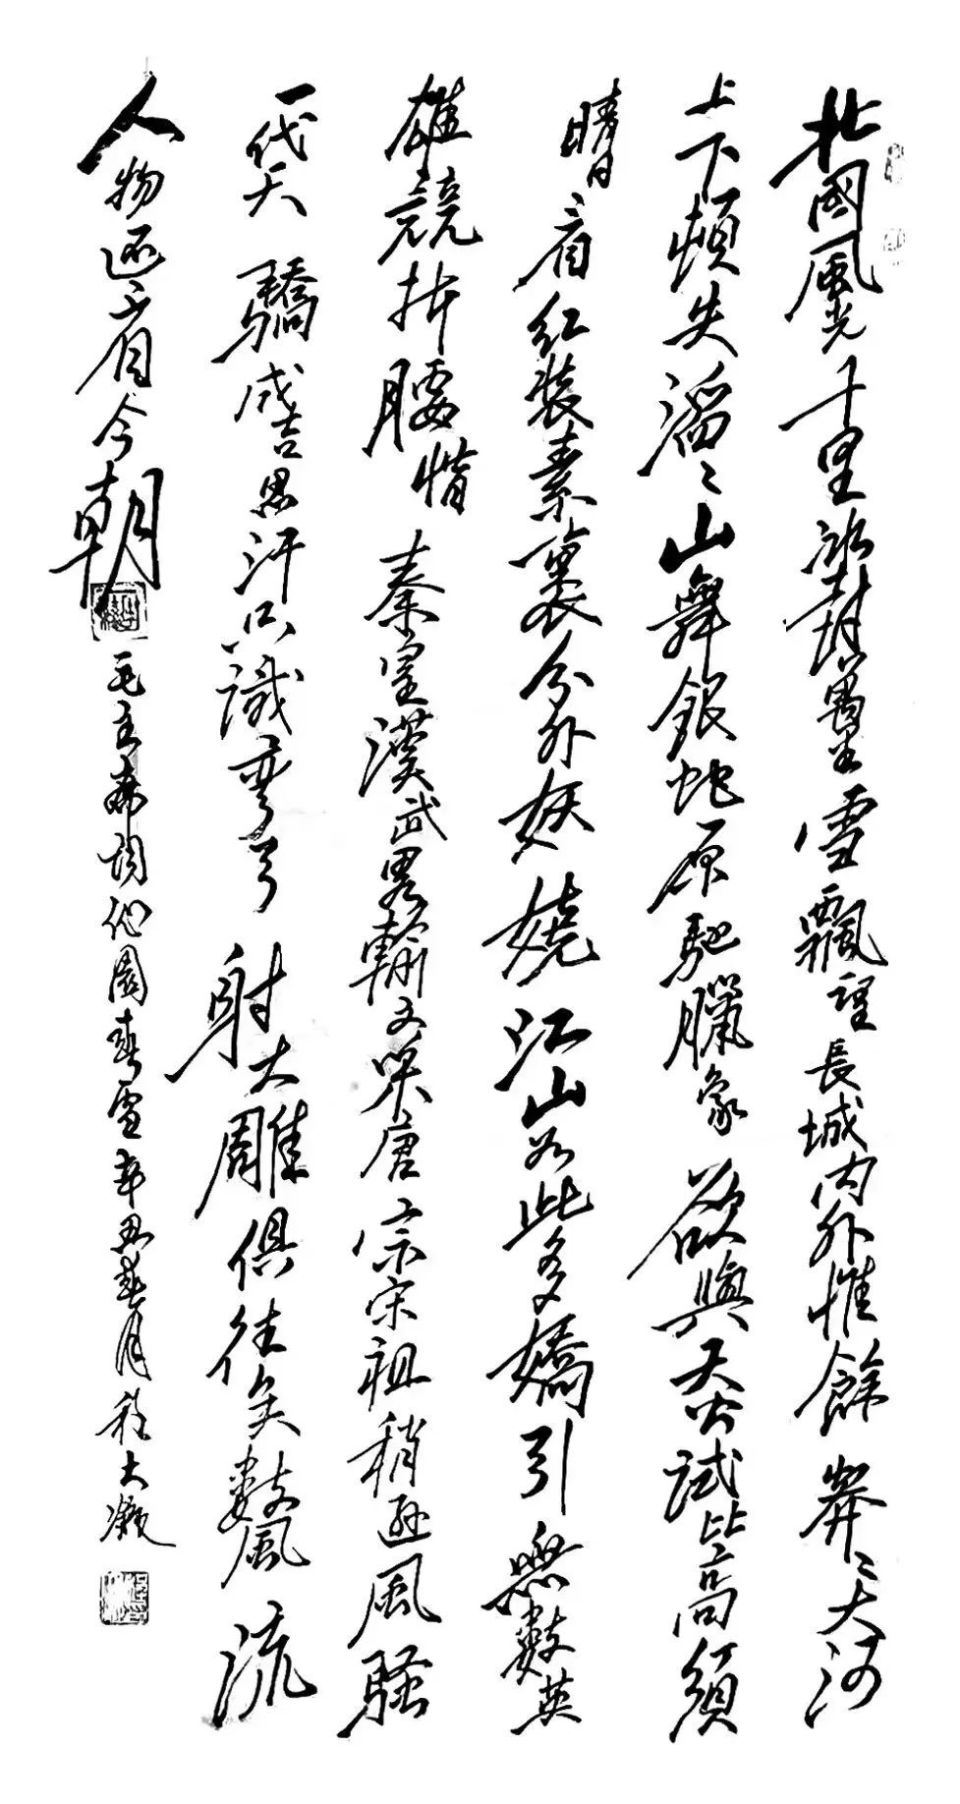 北國風光千里冰封萬里雪飄望長城內外惟餘莽〻大河
上下頓失滔〻山舞銀蛇原馳臘象欲與天公試比高須
晴日看紅裝素裹分外妖嬈江山如此多嬌引無數英
雄競折腰惜秦皇漢武畧輸文采唐宗宋祖稍遜風騷
一代天驕成吉思汗只識彎弓射大雕俱往矣數風流
人物还看今朝
毛主席詞沁園春雪辛丑春月程大